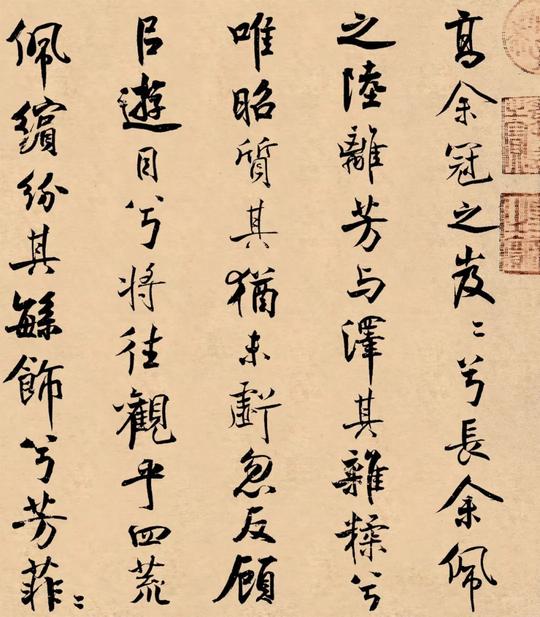 高余冠之岌々兮長余佩
之陸離芳与澤其雜糅兮
唯昭質其猶未虧忽反顧
㠯遊目兮将往觀乎四荒
佩繽紛其緐飾兮芳菲々